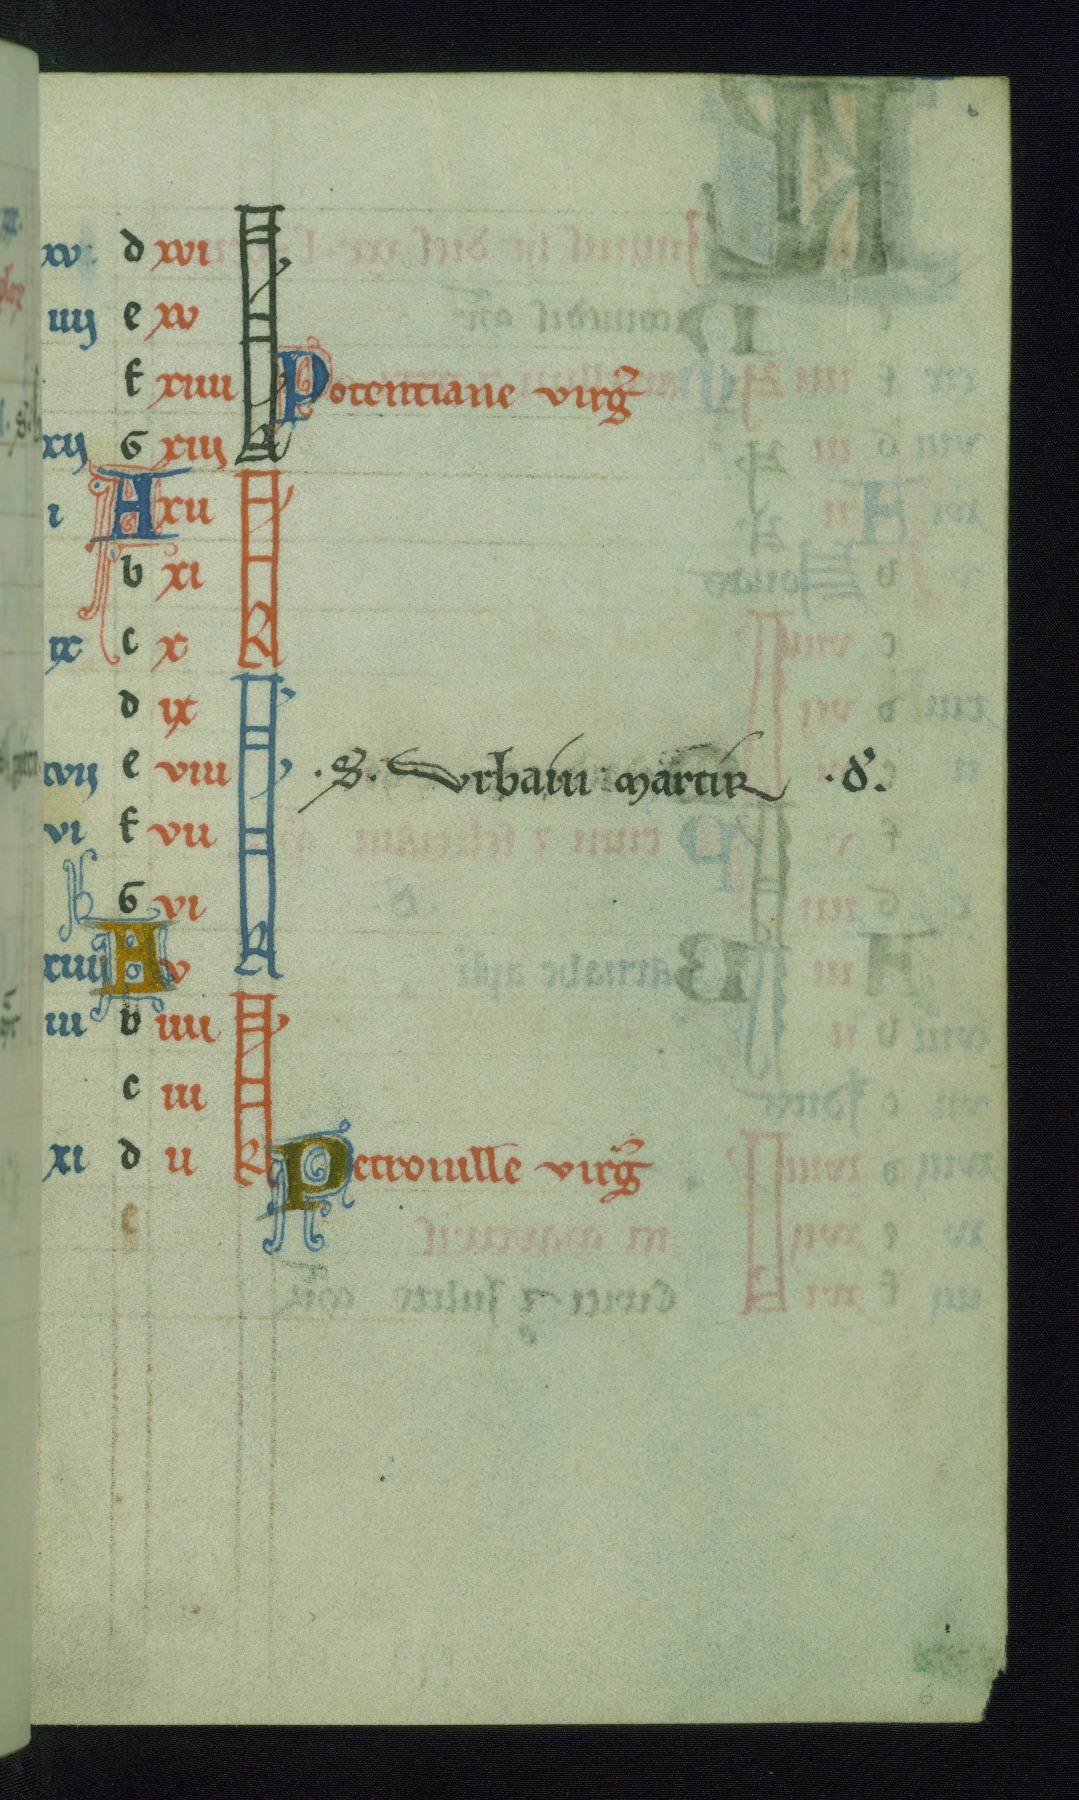 xv d xvi kl
iiij e xv
f xiiii Potentiane virg̃
xij G xiij
i A xii kl
b xi
ix c x
d ix kl
xvij e viii .S. Vrbain martir .d.
vi f vii
G vi
xiiij A v
iii b iiii kl
c iii
xi d ii Petronille virg̃
e
6